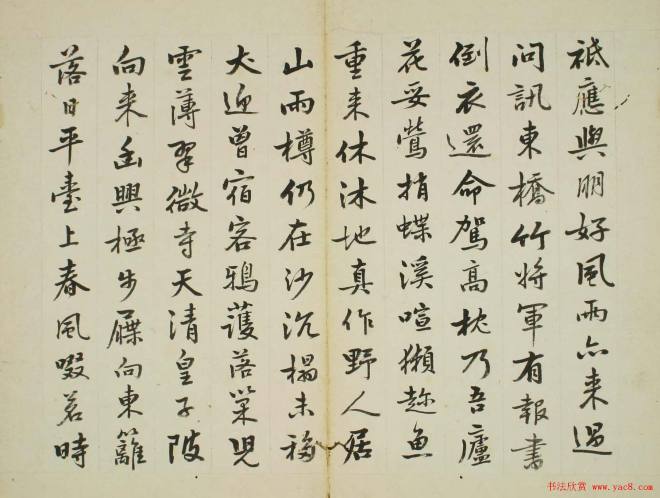 祗應與朋好風雨亦来過
问訊東橋竹将軍有報書
倒衣還命駕高枕乃吾廬
花妥鶯捎蝶溪喧獺趂魚
重来休沐地真作野人居
山雨樽仍在沙沉榻未移
犬迎曾宿客鴉護落巢児
雲薄翠微寺天清皇子陂
向来幽興極步屧向東籬
落日平臺上春風啜茗時
书法欣赏 www.yac8.com